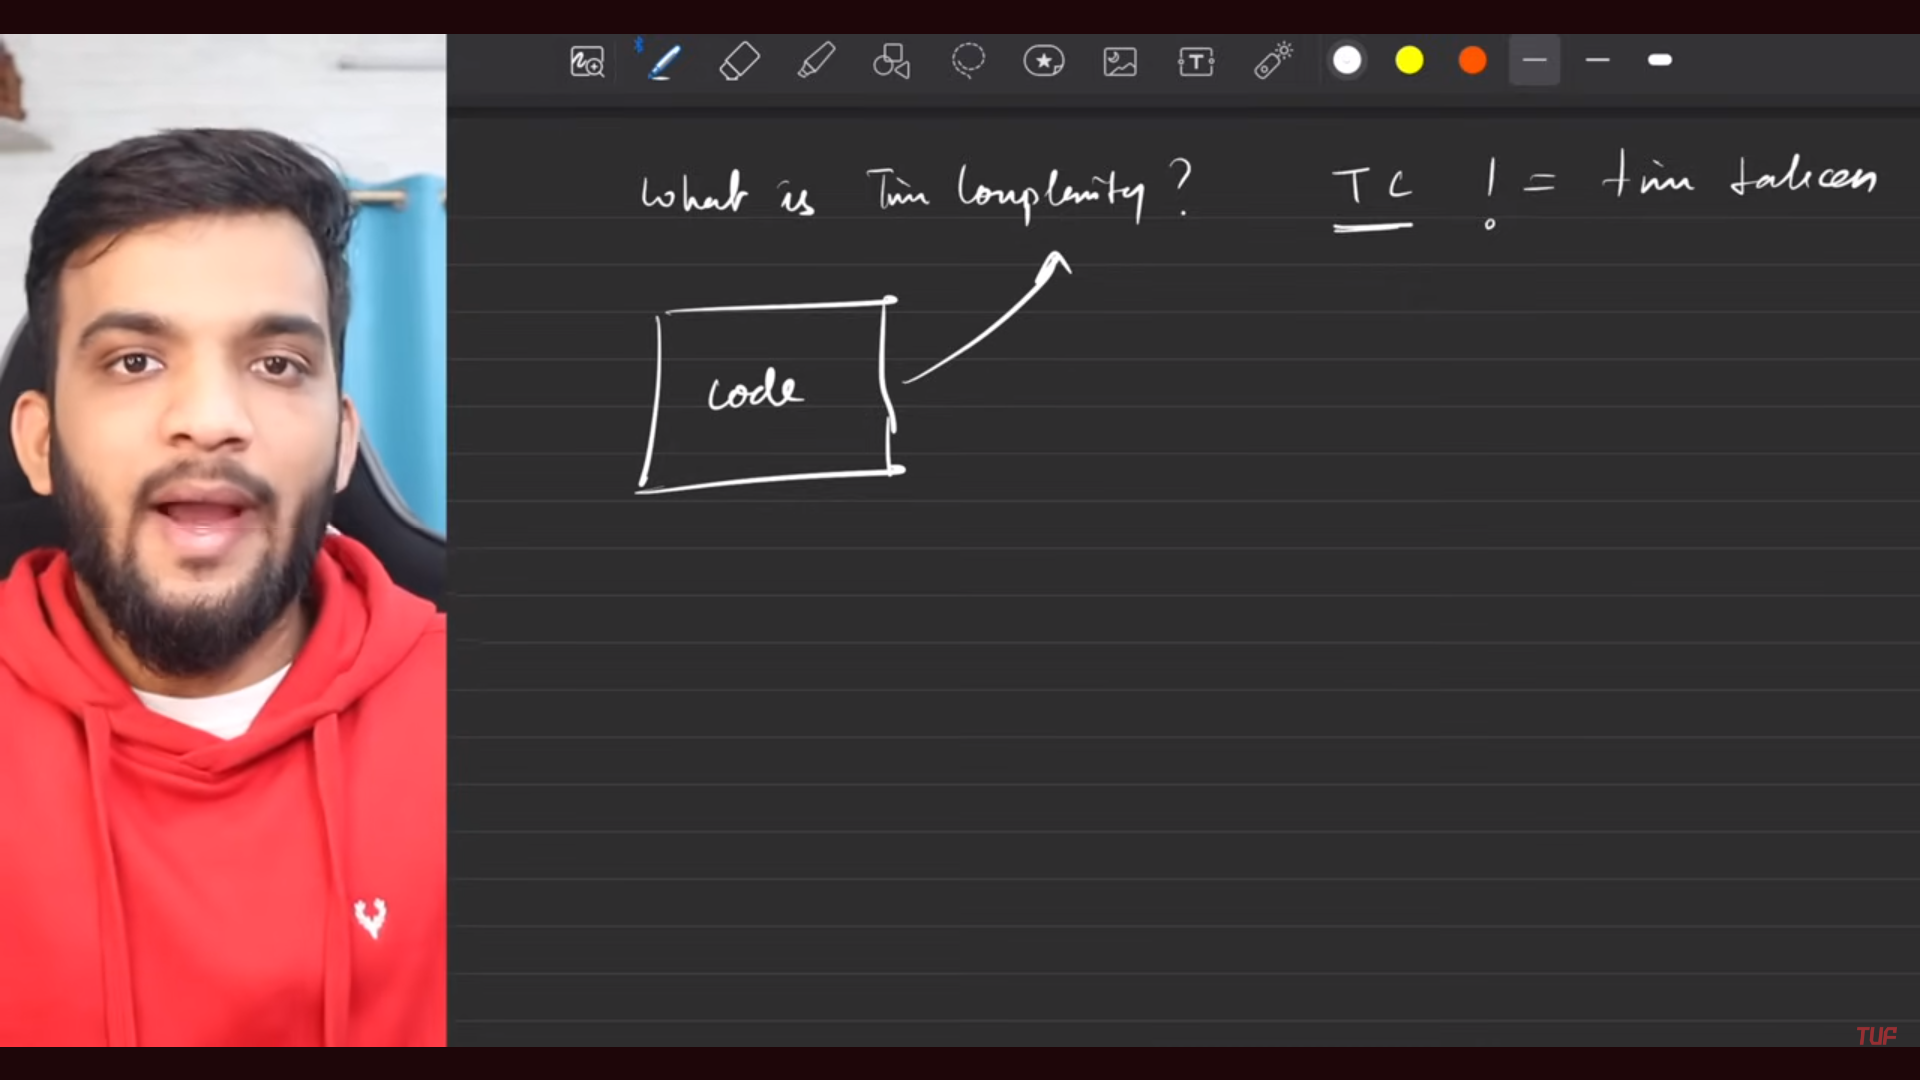 What is Time Complexity? TC != time taken
code
TUF